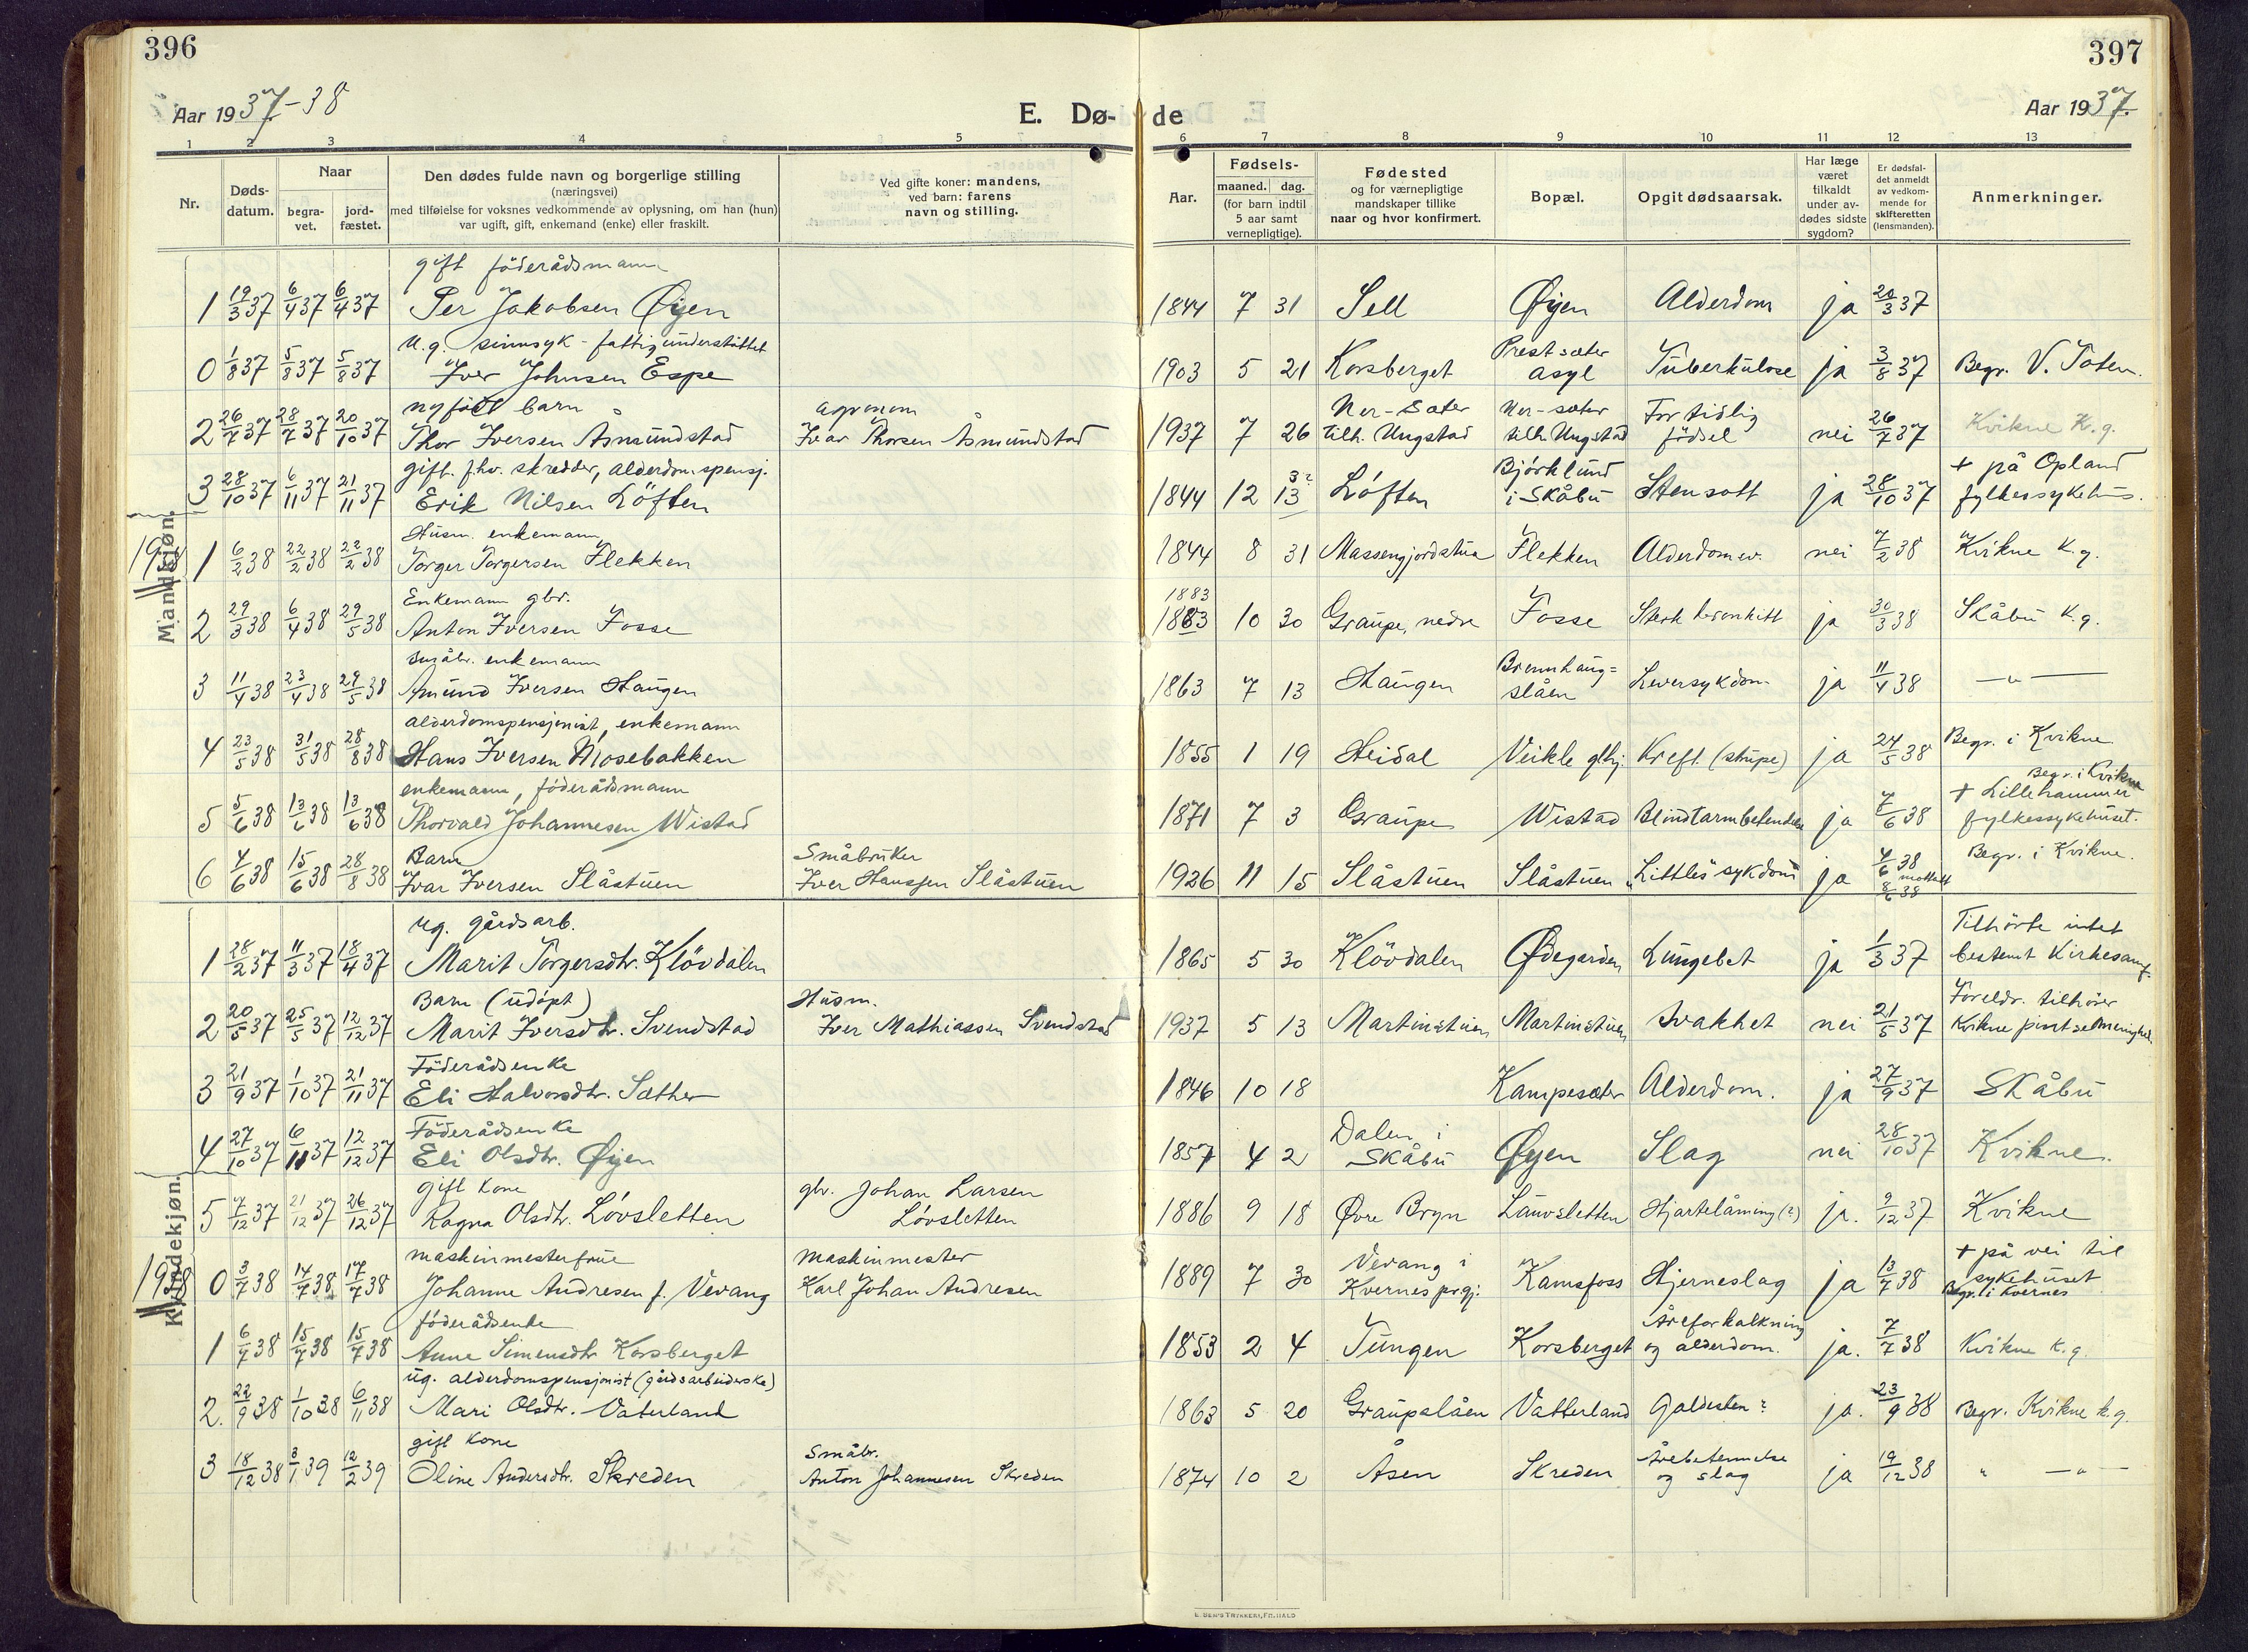 396
Aar 1937-38
E. Dø-
1 2 3 4 5
Nr.
Døds-
datum.
Naar
begra-
vet.
jord-
fæstet.
Den dødes fulde navn og borgerlige stilling
(næringsvei)
med tilføielse for voksnes vedkommende av oplysning, om han (hun)
var ugift, gift, enkemand (enke) eller fraskilt.
Ved gifte koner: mandens,
ved barn: farens
navn og stilling.
Mandkjøn.
gift föderådsmann
1 19/3 37 6/4 37 6/4 37 Per Jakobsen Øyen
u.g. sinnsyk - fattigunderstöttet
0 1/8 37 5/8 37 5/8 37 Iver Johnsen Espe
nyfödt barn agronom
2 26/7 37 28/7 37 20/10 37 Thor Iversen Åsmundstad Ivar Thorsen Åsmundstad
gift. fhv. skredder, alderdomspensj.
3 28/10 37 6/11 37 21/11 37 Erik Nilsen Löften
1938
Husm. enkemann
1 6/2 38 22/2 38 22/2 38 Torger Torgersen Flekken
Enkemann gbr.
2 29/3 38 6/4 38 29/5 38 Anton Iversen Fosse
småbr. enkemann
3 11/4 38 23/4 38 29/5 38 Amund Iversen Haugen
alderdomspensjonist, enkemann
4 23/5 38 31/5 38 28/8 38 Hans Iversen Mosebakken
enkemann, föderådsmann
5 5/6 38 13/6 38 13/6 38 Thorvald Johannesen Wistad
Barn Småbruker
6 4/6 38 15/6 38 28/8 38 Ivar Iversen Slåstuen Iver Hanssen Slåstuen
Kvindekjøn.
ug. gårdsarb.
1 28/2 37 11/3 37 18/4 37 Marit Torgersdtr. Klövdalen
Barn (udöpt) Husm.
2 20/5 37 25/5 37 12/12 37 Marit Iversdtr. Svendstad Iver Mathiassen Svendstad
Föderådsenke
3 21/9 37 1/10 37 21/11 37 Eli Halvorsdtr. Sæther
Föderådsenke
4 27/10 37 6/11 37 12/12 37 Eli Olsdtr. Øyen
gift kone gbr. Johan Larsen
5 7/12 37 21/12 37 26/12 37 Ragna Olsdtr. Lövsletten Lövsletten
1938
maskinmesterfrue maskinmester
0 3/7 38 14/7 38 17/7 38 Johanne Andresen f. Vevang Karl Johan Andresen
föderådsenke
1 6/7 38 15/7 38 15/7 38 Anne Simensdtr Korsberget
ug. alderdomspensjonist (gårdsarbeiderske)
2. 22/9 38 1/10 38 6/11 38 Mari Olsdtr. Vaterland
gift kone Småbr.
3 18/12 38 3/1 39 12/2 39 Oline Andersdtr. Skreden Anton Johannesen Skreden
397
Aar 1937.
de
6 7 8 9 10 11 12 13
Aar.
Fødsels-
maaned. dag.
(for barn indtil
5 aar samt
vernepligtige).
Fødested
og for værnepligtige
mandskaper tillike
naar og hvor konfirmert.
Bopæl.
Opgit dødsaarsak.
Har læge
været
tilkaldt
under av-
dødes sidste
sygdom?
Er dødsfal-
det anmeldt
av vedkom-
mende for
skifteretten
(lensmanden).
Anmerkninger.
1844 7 31 Sell Øyen Alderdom ja 20/3 37
Prestsæter
1903 5 21 Korsberget asyl Tuberkulose ja 3/8 37 Begr. V. Toten.
Ner-Sæter Ner-sæter For tidlig
1937 7 26 tilh. Ungstad tilh. Ungstad födsel nei 26/7 37 Kvikne K.g.
3? Björklund + på Opland
1844 12 13 Löften i Skåbu Stensott ja 28/10 37 fylkessykehus.
1844 8 31 Massengjordstua Flekken Alderdomsv. nei 7/2 38 Kvikne k.g.
1883
1883 10 30 Graupe, nedre Fosse Sterk bronkitt ja 30/3 38 Skåbu k.g.
Brennhaug=
1863 7 13 Haugen slåen Leversykdom ja 11/4 38 — " —
1855 1 19 Heidal Veikle glhj. Kreft (strupe) ja 24/5 38 Begr. i Kvikne
Begr. i Kvikne
+ Lillehammer
1871 7 3 Graupe Wistad Blindtarmbetendelse ja 7/6 38 fylkessykehuset.
1926 11 15 Slåstuen Slåstuen "Littles" sykdom ja 4/6 38 mottatt 8/6 38 Begr. i Kvikne.
Tilhörte intet
1865 5 30 Klövdalen Ødegarden Lungebet ja 1/3 37 bestemt Kirkesamf.
Foreldr. tilhörer
1937 5 13 Martinstuen Martinstuen Svakhet nei 21/5 37 Kvikne pinsesemenighet.
1846 10 18 Kampesæter Alderdom. ja 27/9 37 Skåbu
Dalen i
1857 4 2 Skåbu Øyen Slag nei 28/10 37 Kvikne.
1886 9 18 Øvre Bryn Lauvsletten Hjertelåming (?) ja. 9/12 37 Kvikne
Vevang i + på vei til
1889 7 30 Kvernes prgj. Kamsfoss Hjerneslag ja 13/7 38 sykehuset
Begr. i Kvernes
Åreforkalkning
1853 2 4 Tungen Korsberget og alderdom. ja. 7/7 38 Kvikne k.g.
1863 5 20 Graupslåen Vatterland Galdesten? ja. 23/9 38 Begr. Kvikne k.g.
Årebetennelse
1874 10 2 Åsen Skreden og slag ja 19/12 38 " — " —